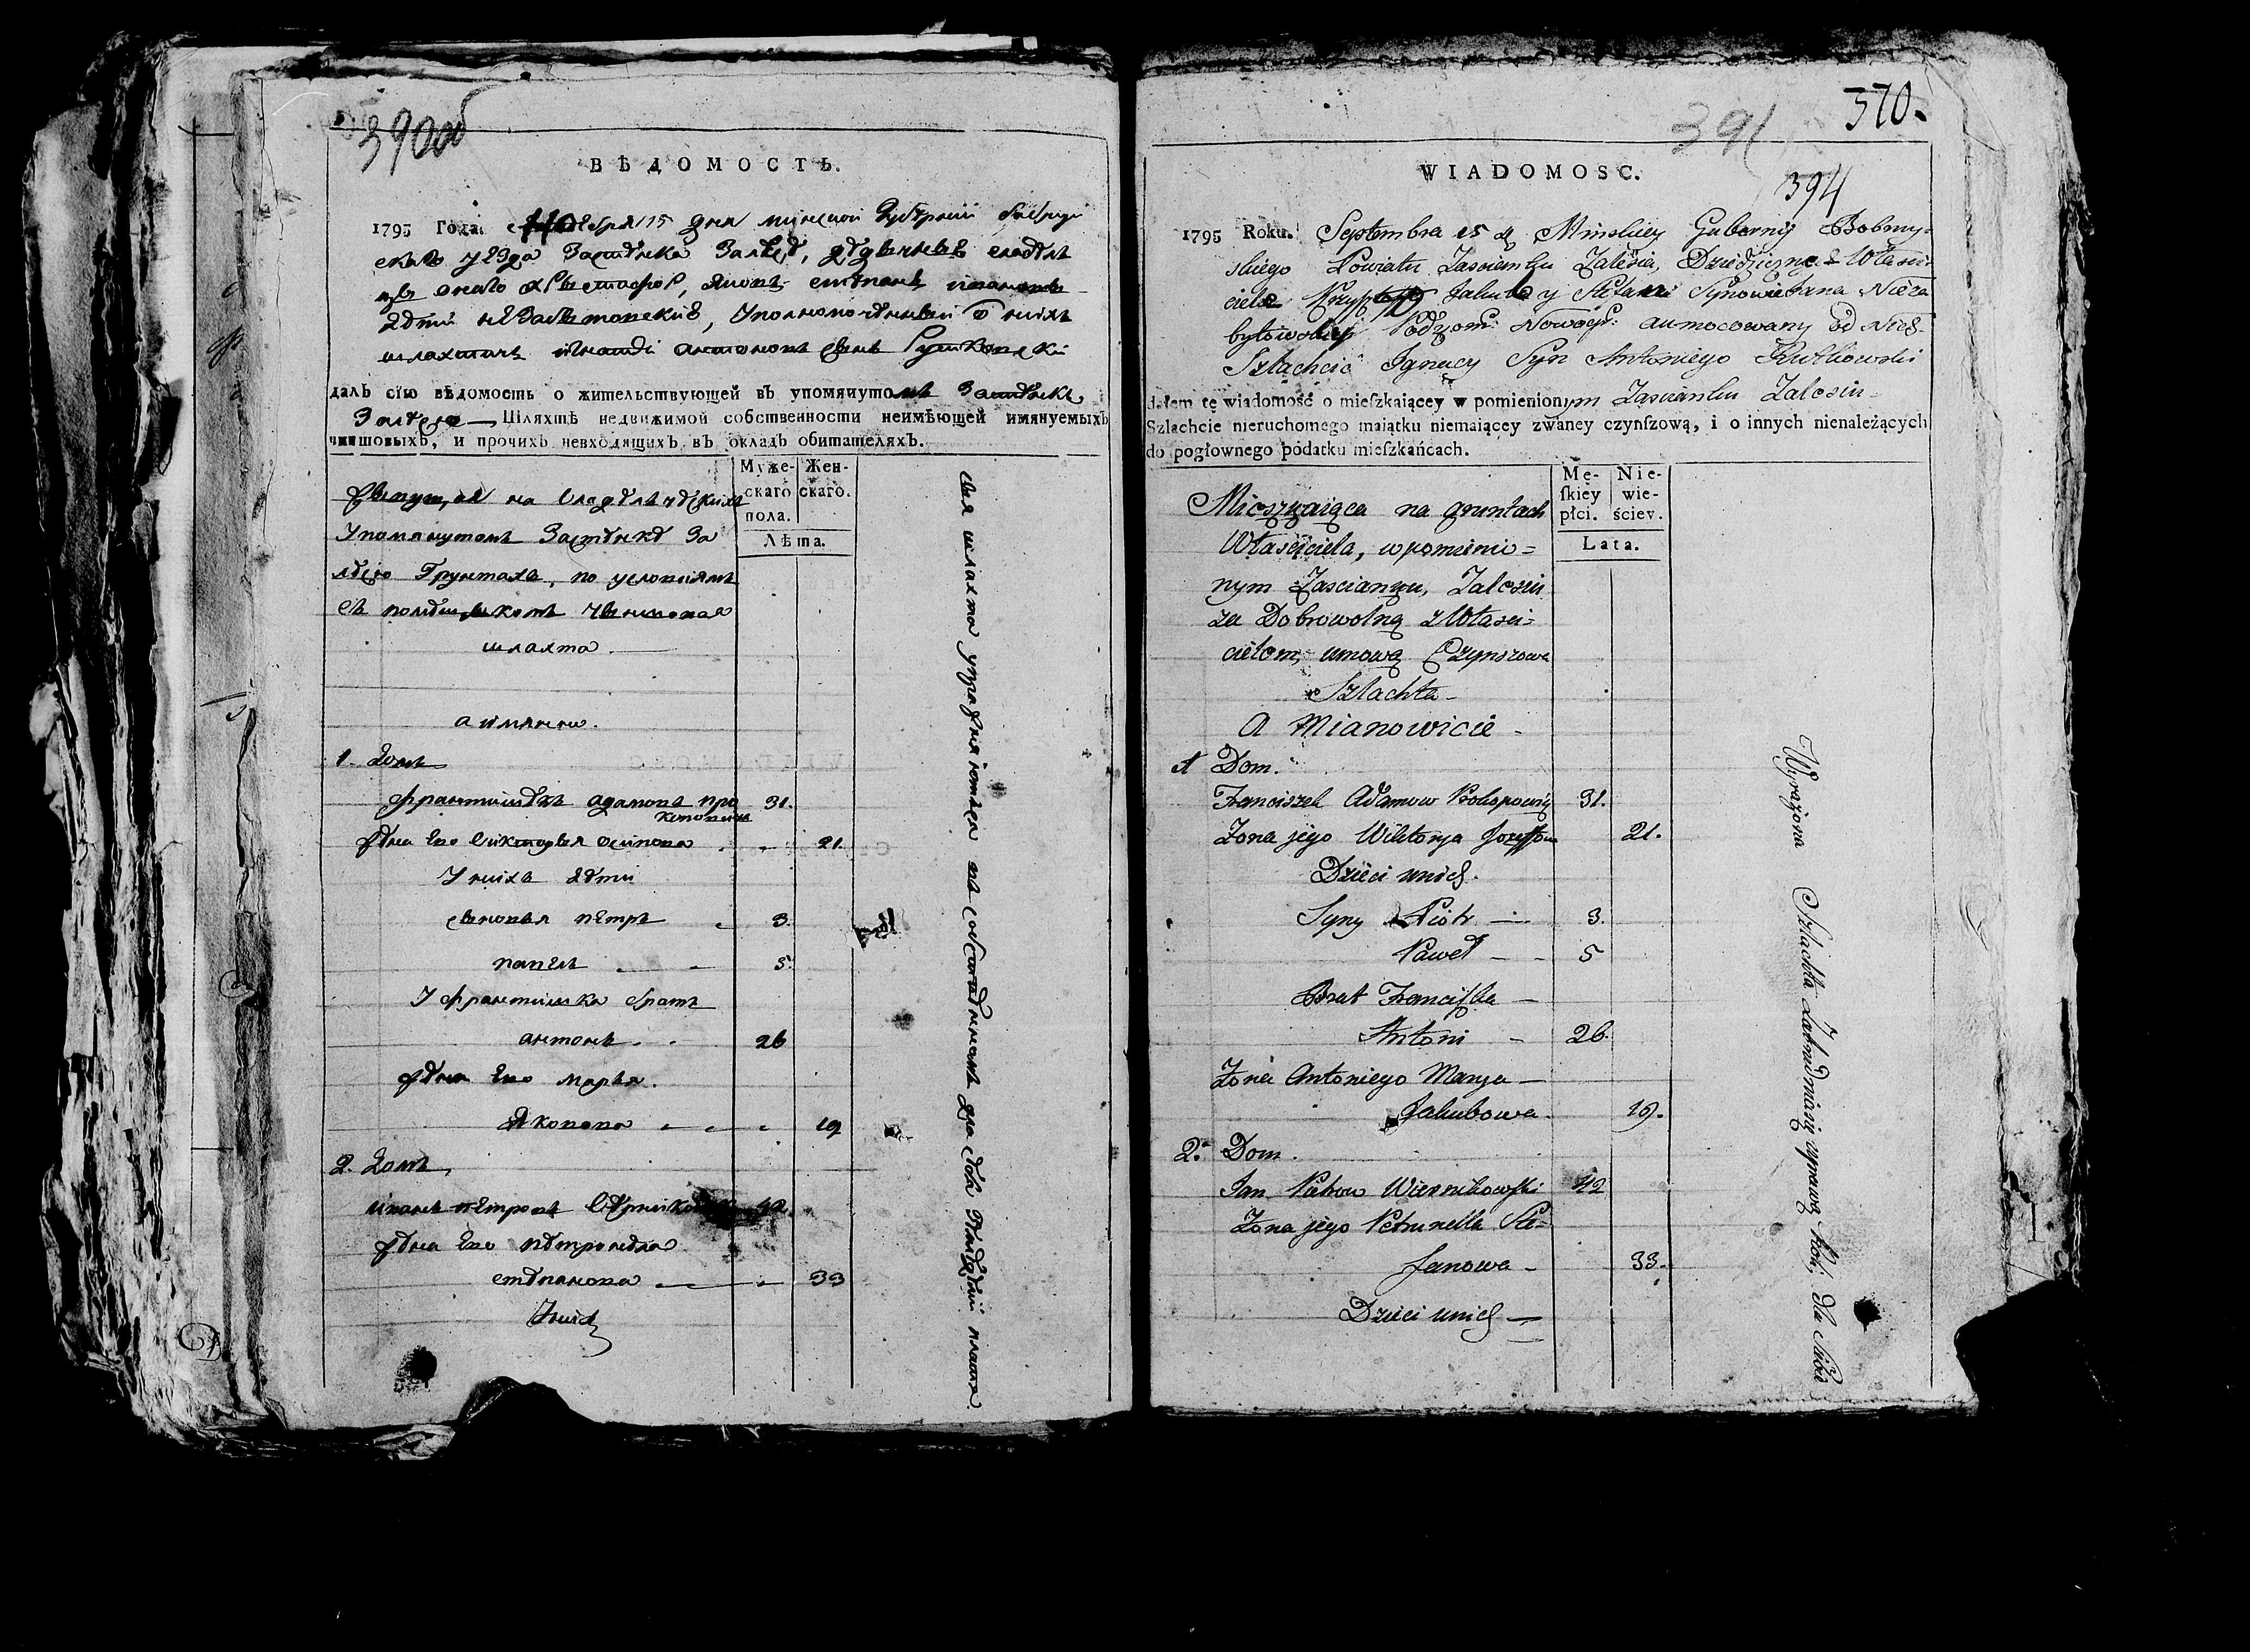 390об
ВѢДОМОСТЬ.
1795 Года сентебря 15 дня минской Губернии бобруй
скаго уезда Застенка Залесе, дедичные владел
цы онаго Крыстофор, Яковъ степанъ ивановы
дети незабытовские, уполномоченный от нихъ
шляхтичь игнаци антоновъ сынъ Рутковски
далъ сїю вѣдомость о жительствующей въ упомянутомъ Застенкѣ
Залесю Шляхтѣ недвижимой собственности неимѣющей имянуемыхъ
чиншовыхъ, и прочихъ невходящихъ въ окладъ обитателяхъ.
Муже- Жен-
скаго скаго.
пола.
Лѣта.
живущая на владелческихъ
упомянутомъ Застенке За
лесю Грунтахъ, по условіямъ
съ помещикомъ чиншовая
шляхта.
а имянно.
1. домъ
Франтишекъ адамовъ про 31.
коповичъ
жена Его Виктория осипова 21.
У нихъ дети
сыновья петръ 3.
павелъ 5.
У Франтишка братъ
антонъ 26
жена Его марья.
Яковова 19
2. домъ
иванъ петровъ 42.
жена Его петронеля
степанова 33
У них
сия шляхта упражняются въ собственномъ для себя
370.
391
394
WIADOMOSC.
1795 Roku. Septembra 15 d. Minskiey Gubernij Bobruy-
skiego Powiatu Zascianku Zalesia, Dziedziczne Własci-
ciele Krysztof Jakub y Stefan Synowie Jana Nieza
bytowskiey Podkom: Nowogr: aumocowany od Nich
Szlachcic Ignacy Syn Antoniego Rutkowski
dałem tę wiadomość o mieſzkaiącey w pomienionym Zascianku Zalesiu
Szlachcie nieruchomego maiątku niemaiącey zwaney czynſzową, i o innych nienależących
do pogłownego podatku mieſzkańcach.
Mę- Nie-
ſkiey wie-
płci. ściey.
Lata.
Mieszkaiąca na gruntach
Własciciela, w pomienio=
nym Zascianku, Zalesiu
za Dobrowolną z Własci=
cielom, umową Czynszowa
Szlachta
A Mianowicie
1 Dom.
Franciszek Adamow Prokopowicz 31.
Zona jego Wiktorya Jozeffowa 21.
Dzieci unich.
Syny Piotr 3.
Paweł 5
Brat Franciſzka
Antoni 26.
Zona Antoniego Marya
Jakubowa. 19.
2. Dom.
Jan Piotrow Wiernikowſki 42
Zona jego Petrunella Ste=
fanowa 33.
Dzieci unich
Wyrażona Szlachta Zatrudniaią uprawą Roli, dla Siebie